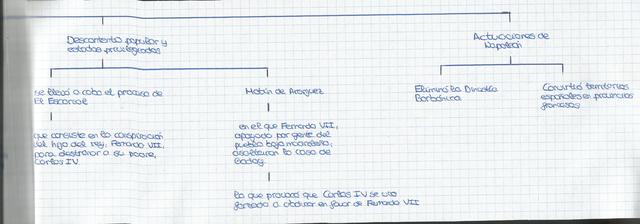 Descontento popular y
estados privilegiados
Actuaciones de
Napoleón
se llevó a cabo el proceso de
El Escorial
Motín de Aranjuez
Eliminó la Dinastía
Borbónica
Convirtió territorios
españoles en provincias
francesas
que consiste en la conspiración
del hijo del rey, Fernando VII,
para destronar a su padre,
Carlos IV.
en el que Fernando VII,
apoyado por gente del
pueblo bajo madrileño,
asaltaron la casa de
Godoy.
lo que provocó que Carlos IV se vio
forzado a abdicar en favor de Fernando VII